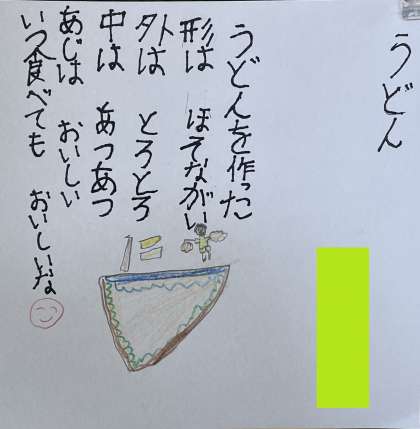 うどん
うどんを作った
形は ほそながい
外は とろとろ
中は あつあつ
あじは おいしい
いつ食べても おいしいな